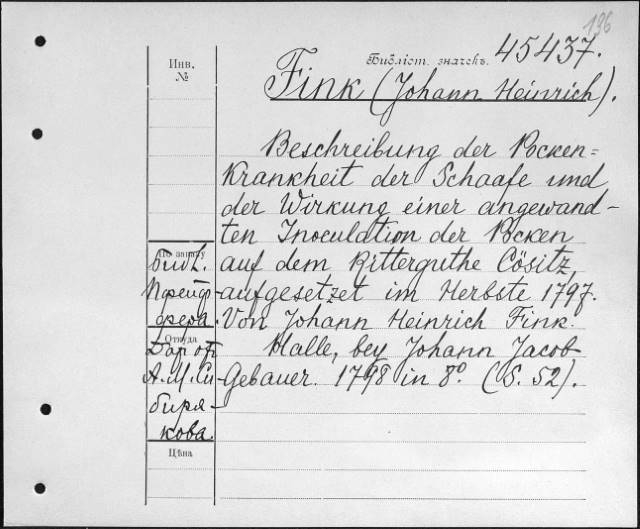 136
Библіот. значекъ. 45437.
Инв.
№
Fink (Johann Heinrich).
Beschreibung der Pocken=
Krankheit der Schaafe und
der Wirkung einer angewand-
ten Inoculation der Pocken
auf dem Ritterguthe Cösitz,
aufgesetzt im Herbste 1797.
Von Johann Heinrich Fink.
Halle, bey Johann Jacob
Gebauer. 1798 in 8º. (S. 52).
По запасу
Библ.
Пфейф-
фера.
Откуда
Дар от
А. М. Си-
биря-
кова.
Цѣна